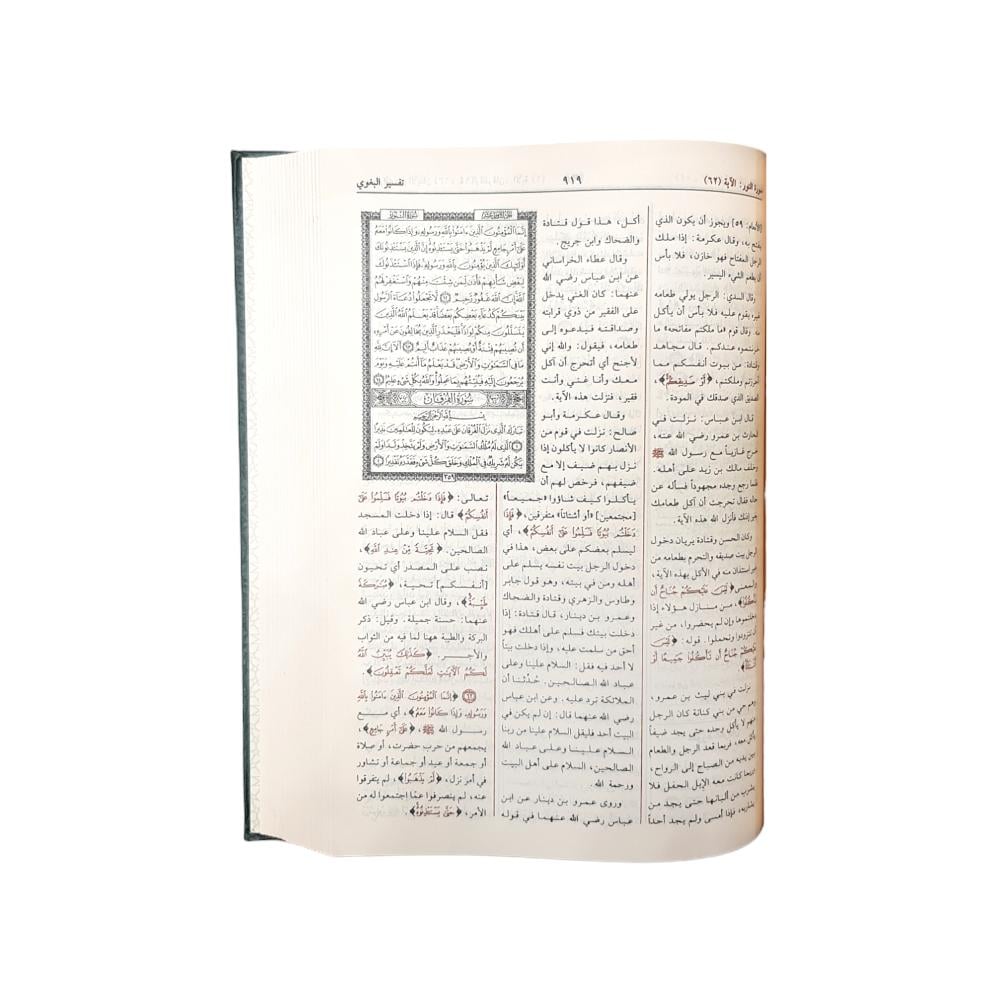 سورة النور: الآية (٦٢)
٩١٩
تفسير البغوي
[الأنعام: ٥٩] ويجوز أن يكون الذي
يفتح به، وقال عكرمة: إذا ملك
الرجل المفتاح فهو خازن، فلا بأس
أن يطعم الشيء اليسير.
وقال السدي: الرجل يولي طعامه
غيره يقوم عليه فلا بأس أن يأكل
منه. وقال قوم «ما ملكتم مفاتحه» ما
خزنتموه عندكم. قال مجاهد
وقتادة: من بيوت أنفسكم مما
أحرزتم وملكتم، ﴿أَوْ صَدِيقِكُمْ﴾،
الصديق الذي صدقك في المودة.
قال ابن عباس: نزلت في
الحارث بن عمرو رضي الله عنه،
خرج غازياً مع رسول الله ﷺ
وخلف مالك بن زيد على أهله،
فلما رجع وجده مجهوداً فسأله عن
حاله فقال تحرجت أن آكل طعامك
بغير إذنك فأنزل الله هذه الآية.
وكان الحسن وقتادة يريان دخول
الرجل بيت صديقه والتحرم بطعامه من
غير استئذان منه في الأكل بهذه الآية،
والمعنى ﴿لَيْسَ عَلَيْكُمْ جُنَاحٌ أَن
تَأْكُلُوا﴾، من منازل هؤلاء إذا
دخلتموها وإن لم يحضروا، من غير
أن تتزودوا وتحملوا. قوله: ﴿لَيْسَ
عَلَيْكُمْ جُنَاحٌ أَن تَأْكُلُوا جَمِيعًا أَوْ
أَشْتَاتًا﴾
نزلت في بني ليث بن عمرو،
وهم حي من بني كنانة كان الرجل
منهم لا يأكل وحده حتى يجد ضيفاً
يأكل معه، فربما قعد الرجل والطعام
بين يديه من الصباح إلى الرواح،
وربما كانت معه الإبل الحفل فلا
يشرب من ألبانها حتى يجد من
يشاربه، فإذا أمسى ولم يجد أحداً
أكل، هذا قول قتادة
والضحاك وابن جريج.
وقال عطاء الخراساني
عن ابن عباس رضي الله
عنهما: كان الغني يدخل
على الفقير من ذوي قرابته
وصداقته فيدعوه إلى
طعامه، فيقول: والله إني
لأجنح أي أتحرج أن آكل
معك وأنا غني وأنت
فقير، فنزلت هذه الآية.
وقال عكرمة وأبو
صالح: نزلت في قوم من
الأنصار كانوا لا يأكلون إذا
نزل بهم ضيف إلا مع
ضيفهم، فرخص لهم أن
يأكلوا كيف شاؤوا «جميعاً»
[مجتمعين] «أو أشتاتاً» متفرقين، ﴿فَإِذَا
دَخَلْتُم بُيُوتًا فَسَلِّمُوا عَلَىٰ أَنفُسِكُمْ﴾، أي
ليسلم بعضكم على بعض، هذا في
دخول الرجل بيت نفسه يسلم على
أهله ومن في بيته، وهو قول جابر
وطاوس والزهري وقتادة والضحاك
وعمرو بن دينار، قال قتادة: إذا
دخلت بيتك فسلم على أهلك فهو
أحق من سلمت عليه، وإذا دخلت بيتاً
لا أحد فيه فقل: السلام علينا وعلى
عباد الله الصالحين. حُدِّثنا أن
الملائكة ترد عليه. وعن ابن عباس
رضي الله عنهما قال: إن لم يكن في
البيت أحد فليقل السلام علينا من ربنا
السلام علينا وعلى عباد الله
الصالحين، السلام على أهل البيت
ورحمة الله.
وروى عمرو بن دينار عن ابن
عباس رضي الله عنهما في قوله
سُورَةُ النُّورِ
إِنَّمَا الْمُؤْمِنُونَ الَّذِينَ ءَامَنُوا بِاللَّهِ وَرَسُولِهِ وَإِذَا كَانُوا مَعَهُ
عَلَىٰ أَمْرٍ جَامِعٍ لَّمْ يَذْهَبُوا حَتَّىٰ يَسْتَـْٔذِنُوهُ إِنَّ الَّذِينَ يَسْتَـْٔذِنُونَكَ
أُولَٰئِكَ الَّذِينَ يُؤْمِنُونَ بِاللَّهِ وَرَسُولِهِ فَإِذَا اسْتَـْٔذَنُوكَ
لِبَعْضِ شَأْنِهِمْ فَأْذَن لِّمَن شِئْتَ مِنْهُمْ وَاسْتَغْفِرْ لَهُمُ
اللَّهَ إِنَّ اللَّهَ غَفُورٌ رَّحِيمٌ ٦٢ لَّا تَجْعَلُوا دُعَاءَ الرَّسُولِ
بَيْنَكُمْ كَدُعَاءِ بَعْضِكُم بَعْضًا قَدْ يَعْلَمُ اللَّهُ الَّذِينَ
يَتَسَلَّلُونَ مِنكُمْ لِوَاذًا فَلْيَحْذَرِ الَّذِينَ يُخَالِفُونَ عَنْ أَمْرِهِ
أَن تُصِيبَهُمْ فِتْنَةٌ أَوْ يُصِيبَهُمْ عَذَابٌ أَلِيمٌ ٦٣ أَلَا إِنَّ لِلَّهِ
مَا فِي السَّمَٰوَٰتِ وَالْأَرْضِ قَدْ يَعْلَمُ مَا أَنتُمْ عَلَيْهِ وَيَوْمَ
يُرْجَعُونَ إِلَيْهِ فَيُنَبِّئُهُم بِمَا عَمِلُوا وَاللَّهُ بِكُلِّ شَيْءٍ عَلِيمٌ ٦٤
سُورَةُ الْفُرْقَانِ
بِسْمِ اللَّهِ الرَّحْمَٰنِ الرَّحِيمِ
تَبَارَكَ الَّذِي نَزَّلَ الْفُرْقَانَ عَلَىٰ عَبْدِهِ لِيَكُونَ لِلْعَٰلَمِينَ نَذِيرًا
١ الَّذِي لَهُ مُلْكُ السَّمَٰوَٰتِ وَالْأَرْضِ وَلَمْ يَتَّخِذْ وَلَدًا وَلَمْ
يَكُن لَّهُ شَرِيكٌ فِي الْمُلْكِ وَخَلَقَ كُلَّ شَيْءٍ فَقَدَّرَهُ تَقْدِيرًا ٢
٣٥٩
تعالى: ﴿فَإِذَا دَخَلْتُم بُيُوتًا فَسَلِّمُوا عَلَىٰ
أَنفُسِكُمْ﴾ قال: إذا دخلت المسجد
فقل السلام علينا وعلى عباد الله
الصالحين. ﴿تَحِيَّةً مِّنْ عِندِ اللَّهِ﴾،
نصب على المصدر أي تحيون
[أنفسكم] تحية، ﴿مُبَٰرَكَةً
طَيِّبَةً﴾، وقال ابن عباس رضي الله
عنهما: حسنة جميلة. وقيل: ذكر
البركة والطيبة ههنا لما فيه من الثواب
والأجر. ﴿كَذَٰلِكَ يُبَيِّنُ اللَّهُ
لَكُمُ الْآيَٰتِ لَعَلَّكُمْ تَعْقِلُونَ﴾.
٦٢ ﴿إِنَّمَا الْمُؤْمِنُونَ الَّذِينَ ءَامَنُوا بِاللَّهِ
وَرَسُولِهِ وَإِذَا كَانُوا مَعَهُ﴾، أي مع
رسول الله ﷺ، ﴿عَلَىٰ أَمْرٍ جَامِعٍ﴾،
يجمعهم من حرب حضرت، أو صلاة
أو جمعة أو عيد أو جماعة أو تشاور
في أمر نزل، ﴿لَّمْ يَذْهَبُوا﴾، لم يتفرقوا
عنه، لم ينصرفوا عمّا اجتمعوا له من
الأمر، ﴿حَتَّىٰ يَسْتَـْٔذِنُوهُ﴾،